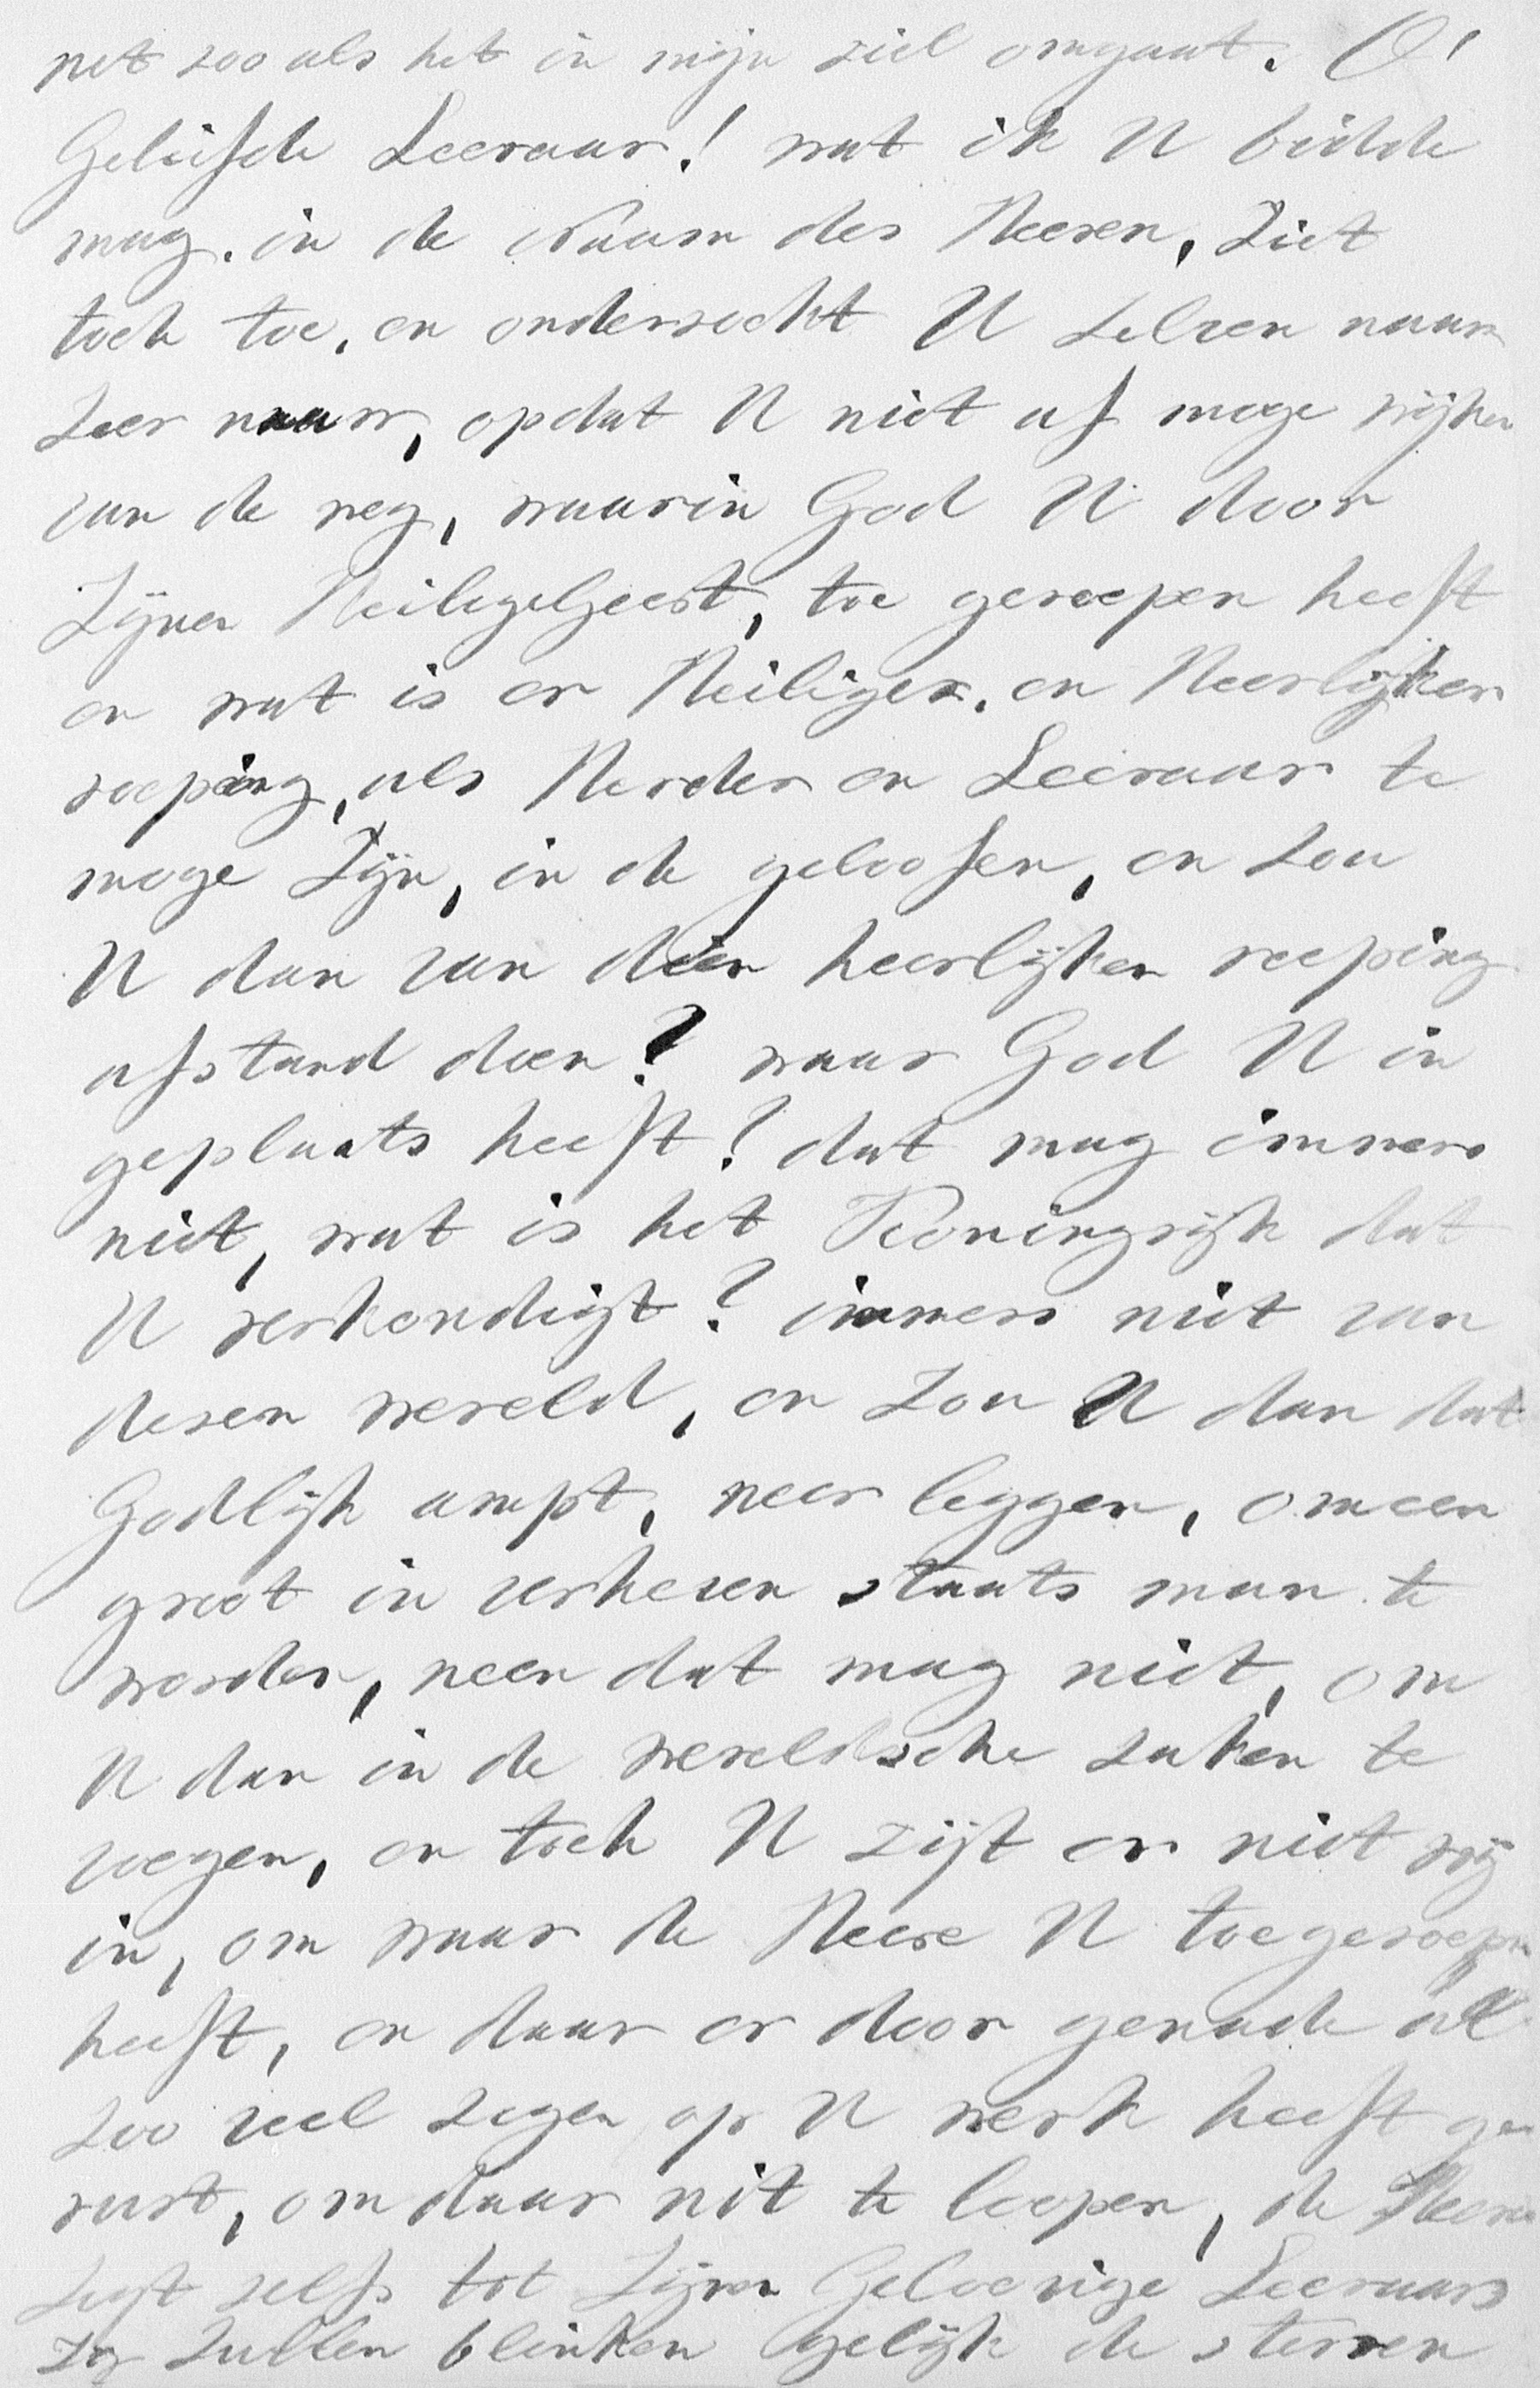 net zoo als het in mijn ziel omgaat. O!
Geliefde Leeraar! wat ik U bidde
mag. in de Naam des Heeren, Ziet
toch toe, en onderzocht U zelven naar
Zeer naar, opdat U niet af moge wijken
van de weg, waarin God U door
Zijnen HeiligeGeest, toe geroepen heeft
en wat is er Heiliger, en Heerlijker
roeping, als Herder en Leeraar te
moge Zijn, in de geloofen, en zou
U dan van dien heerlijken roeping
afstand doen? waar God U in
geplaats heeft? dat mag immers
niet, wat is het Koningrijk dat
U verkondigt? immers niet van
dezen wereld, en Zou U dan dat
Godlijk ampt, neer leggen, om een
groot in verhezen staats man te
worden, neen dat mag niet, om
U dan in de wereldsche zaken te
voegen, en toch U zijt er niet vrij
in, om waar de Heere U toegeroepen
heeft, en daar er door genade al
zoo veel zegen op U werk heeft ge
rust, om daar uit te loopen, de Heere
Zegt zelfs tot Zijnen Geloovige Leeraars
Zij Zullen blinken gelijk de sterren